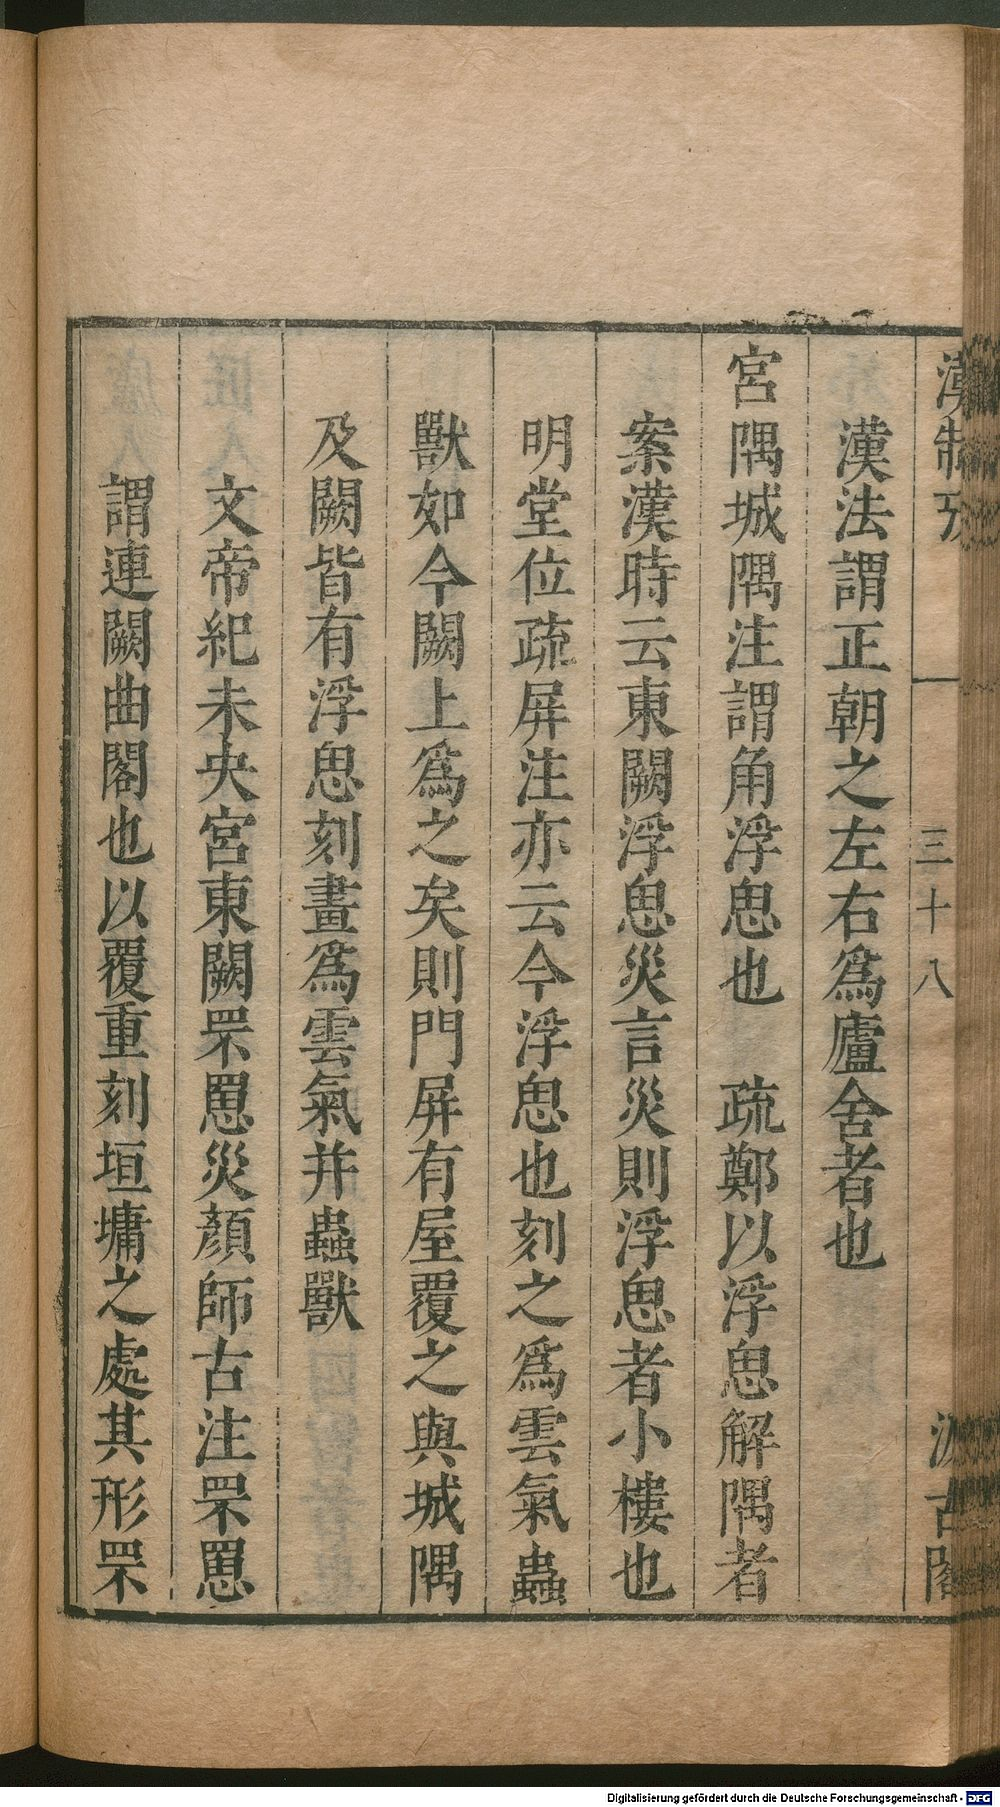 漢制攷
三十八
汲古閣
漢法謂正朝之左右爲廬舍者也
宮隅城隅注謂角浮思也　疏鄭以浮思解隅者
案漢時云東闕浮思災言災則浮思者小樓也
明堂位疏屏注亦云今浮思也刻之爲雲氣蟲
獸如今闕上爲之矣則門屏有屋覆之與城隅
及闕皆有浮思刻畫爲雲氣并蟲獸
文帝紀未央宮東闕罘罳災顏師古注罘罳
謂連闕曲閣也以覆重刻垣墉之處其形罘
Digitalisierung gefördert durch die Deutsche Forschungsgemeinschaft - DFG